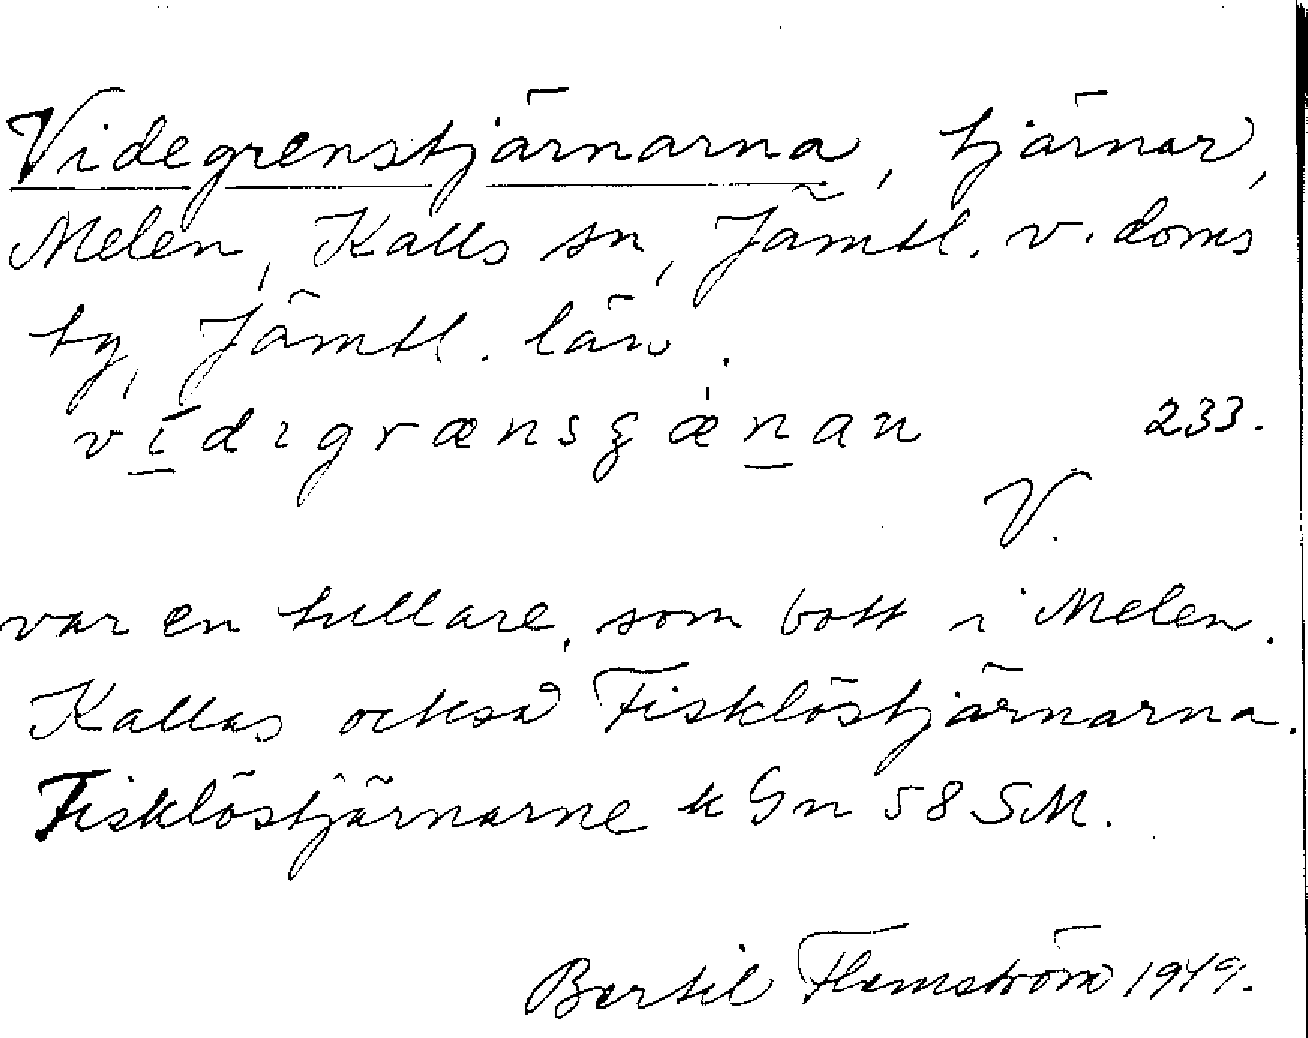 Videgrenstjärnarna, tjärnar,
Melen, Kalls sn, Jämtl. v. doms
hg, Jämtl. län.
vi̲dıgrænsʒæn̲an 233.
V.
var en tullare, som bott i Melen.
Kallas också Fisklöstjärnarna.
Fisklöstjärnarne k Gn 58 SM.
Bertil Flemström 1949.